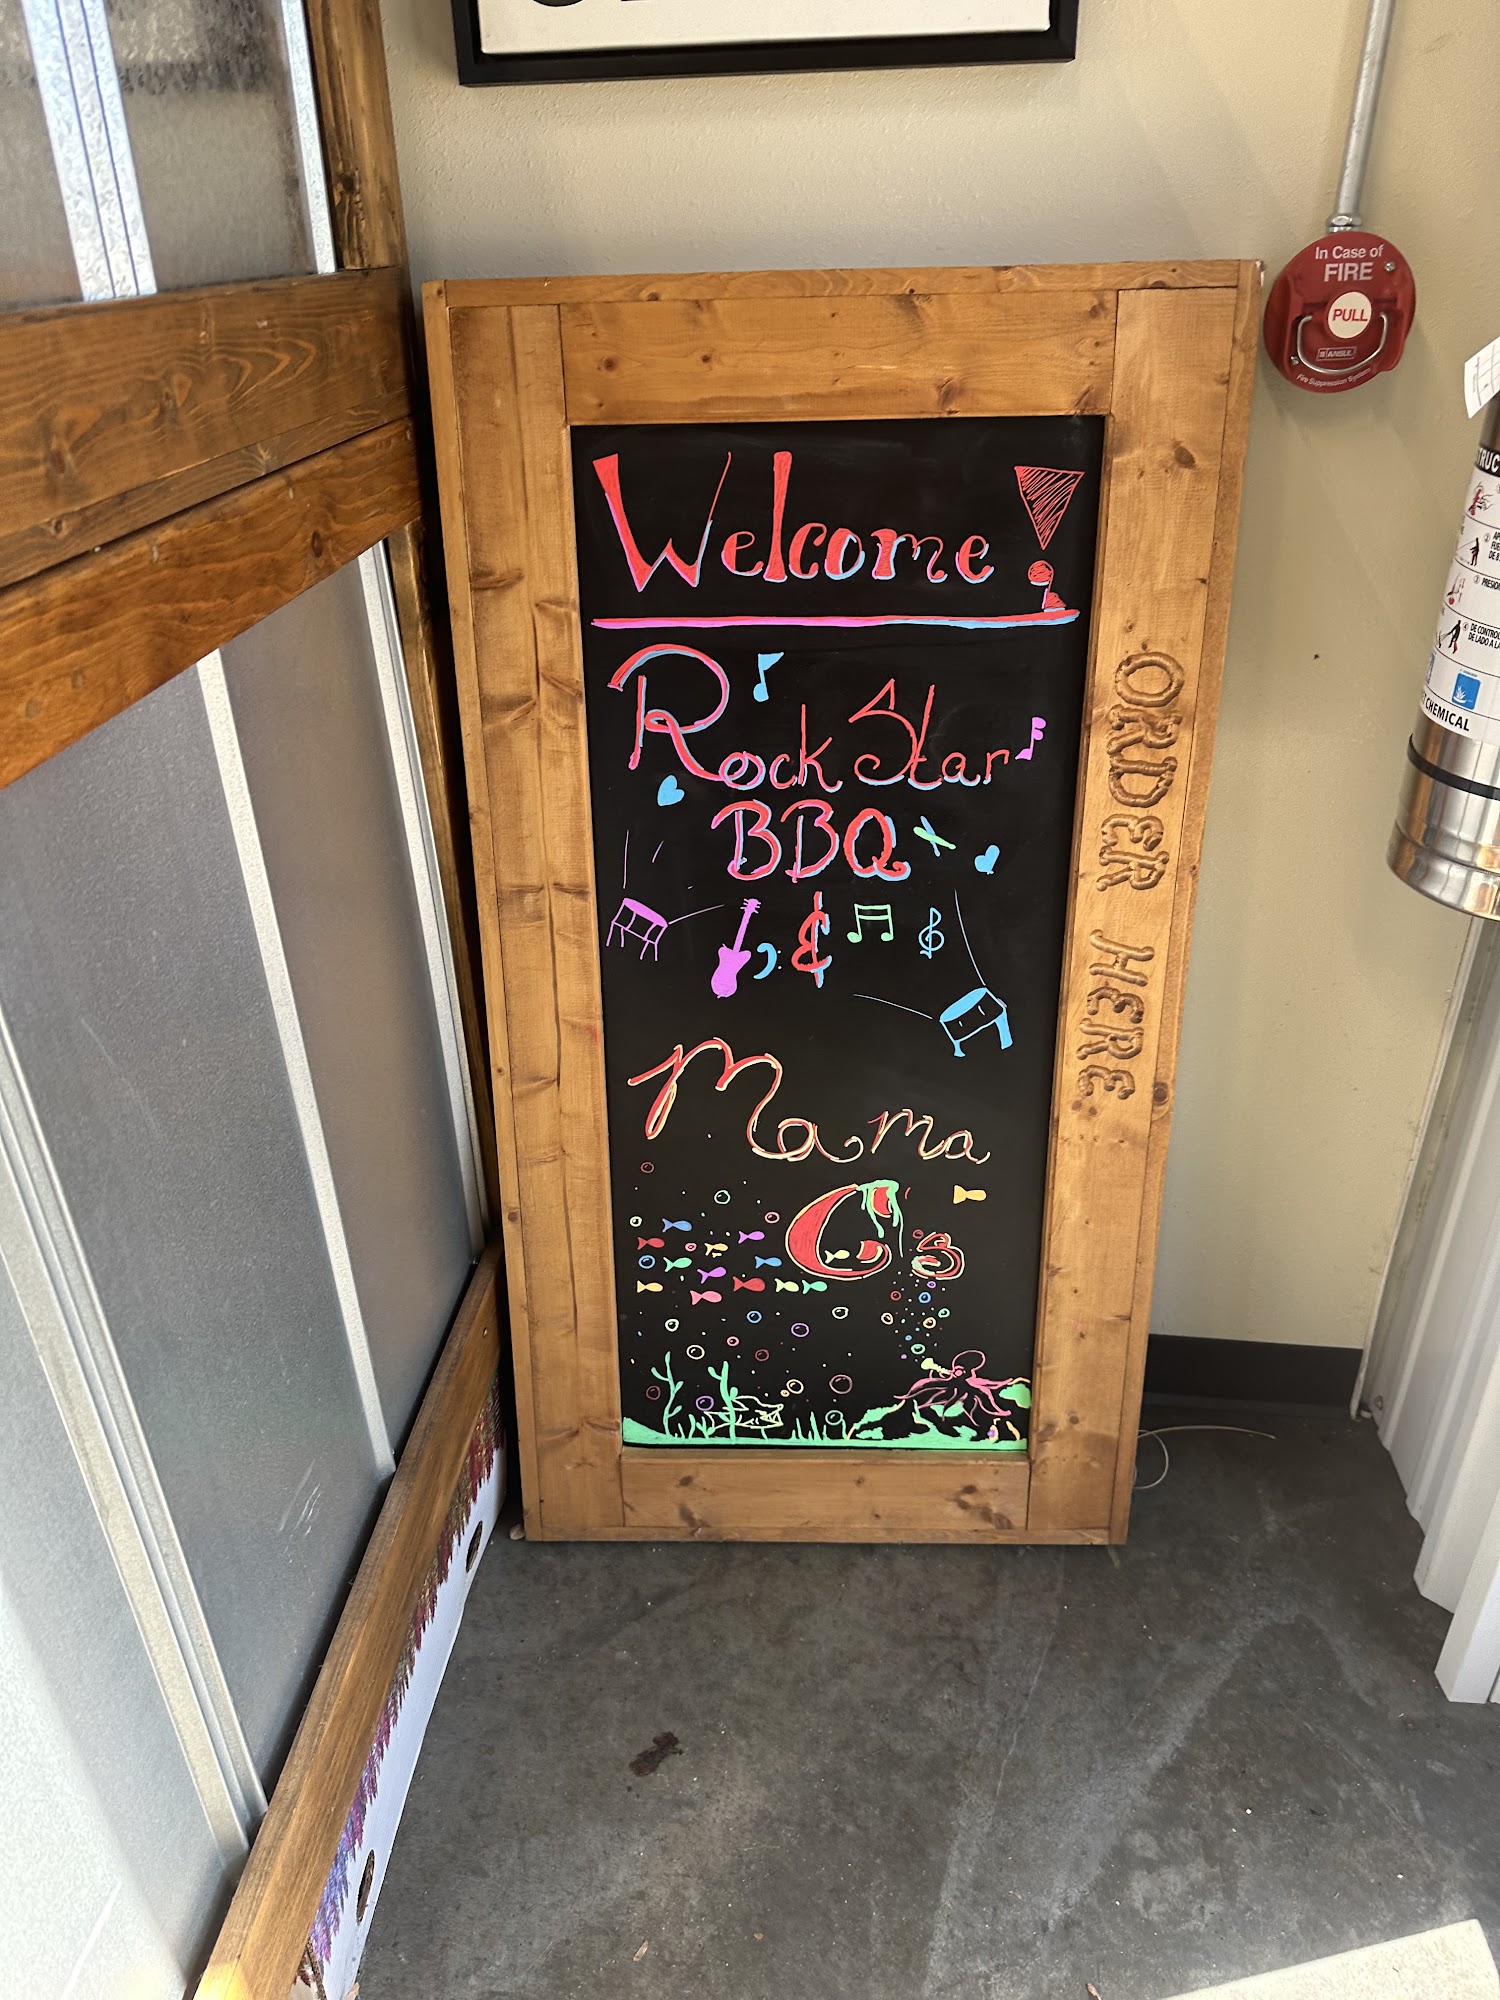 Welcome!
Rock Star
BBQ
&
Mama
C's
ORDER HERE
In Case of
FIRE
PULL
ANSUL
Fire Suppression System
CHEMICAL